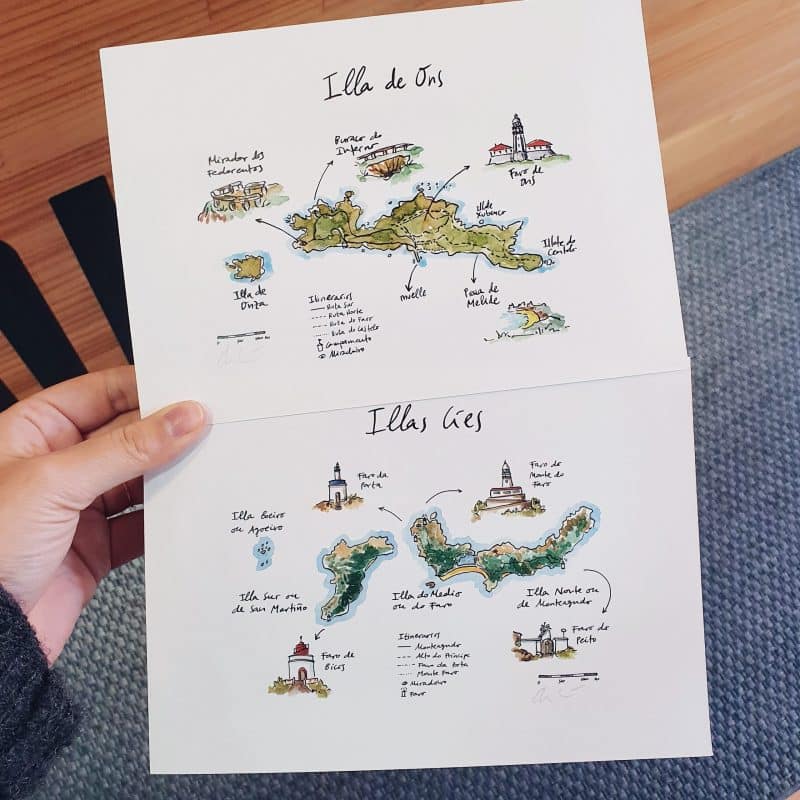 Illa de Ons
Mirador dos
Fedorentos
Buraco do
Inferno
Faro de
Ons
Illote do
Centolo
Illa de
Onza
muelle
Praia de
Melide
Itinerarios
Ruta Sur
Ruta Norte
Ruta do Faro
Ruta do Castelo
Campamento
Miradoiro
Illas Cíes
Faro da
Porta
Faro do
Monte do
Faro
Illa Boeiro
ou Agoeiro
Illa Sur ou
de San Martiño
Illa do Medio
ou do Faro
Illa Norte ou
de Monteagudo
Faro de
Bicos
Faro do
Peito
Itinerarios
Monteagudo
Alto do Príncipe
Faro da Porta
Monte Faro
Miradoiro
Faro